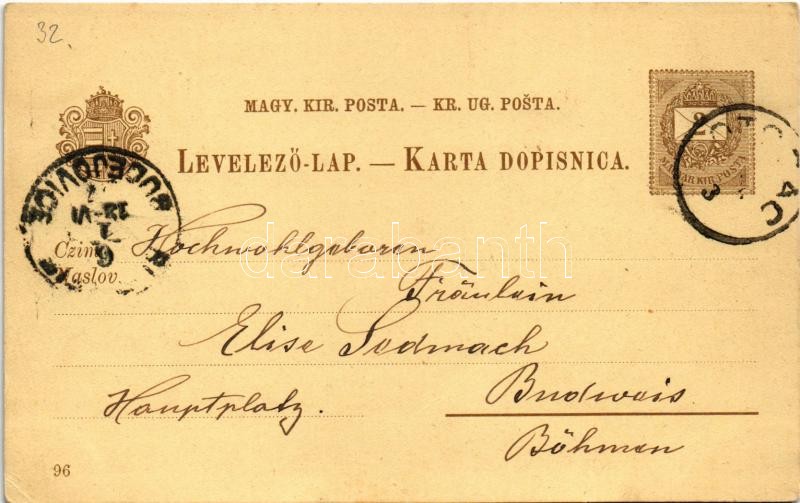 32.
MAGY. KIR. POSTA. — KR. UG. POŠTA.
2
MAGYAR KIR. POSTA
LEVELEZŐ-LAP. — KARTA DOPISNICA.
BUDĚJOVICE
Czim
Naslov
Hochwohlgeboren
Fräulein
Elise Sedmach
Hauptplatz.
Budweis
Böhmen
96
darabanth